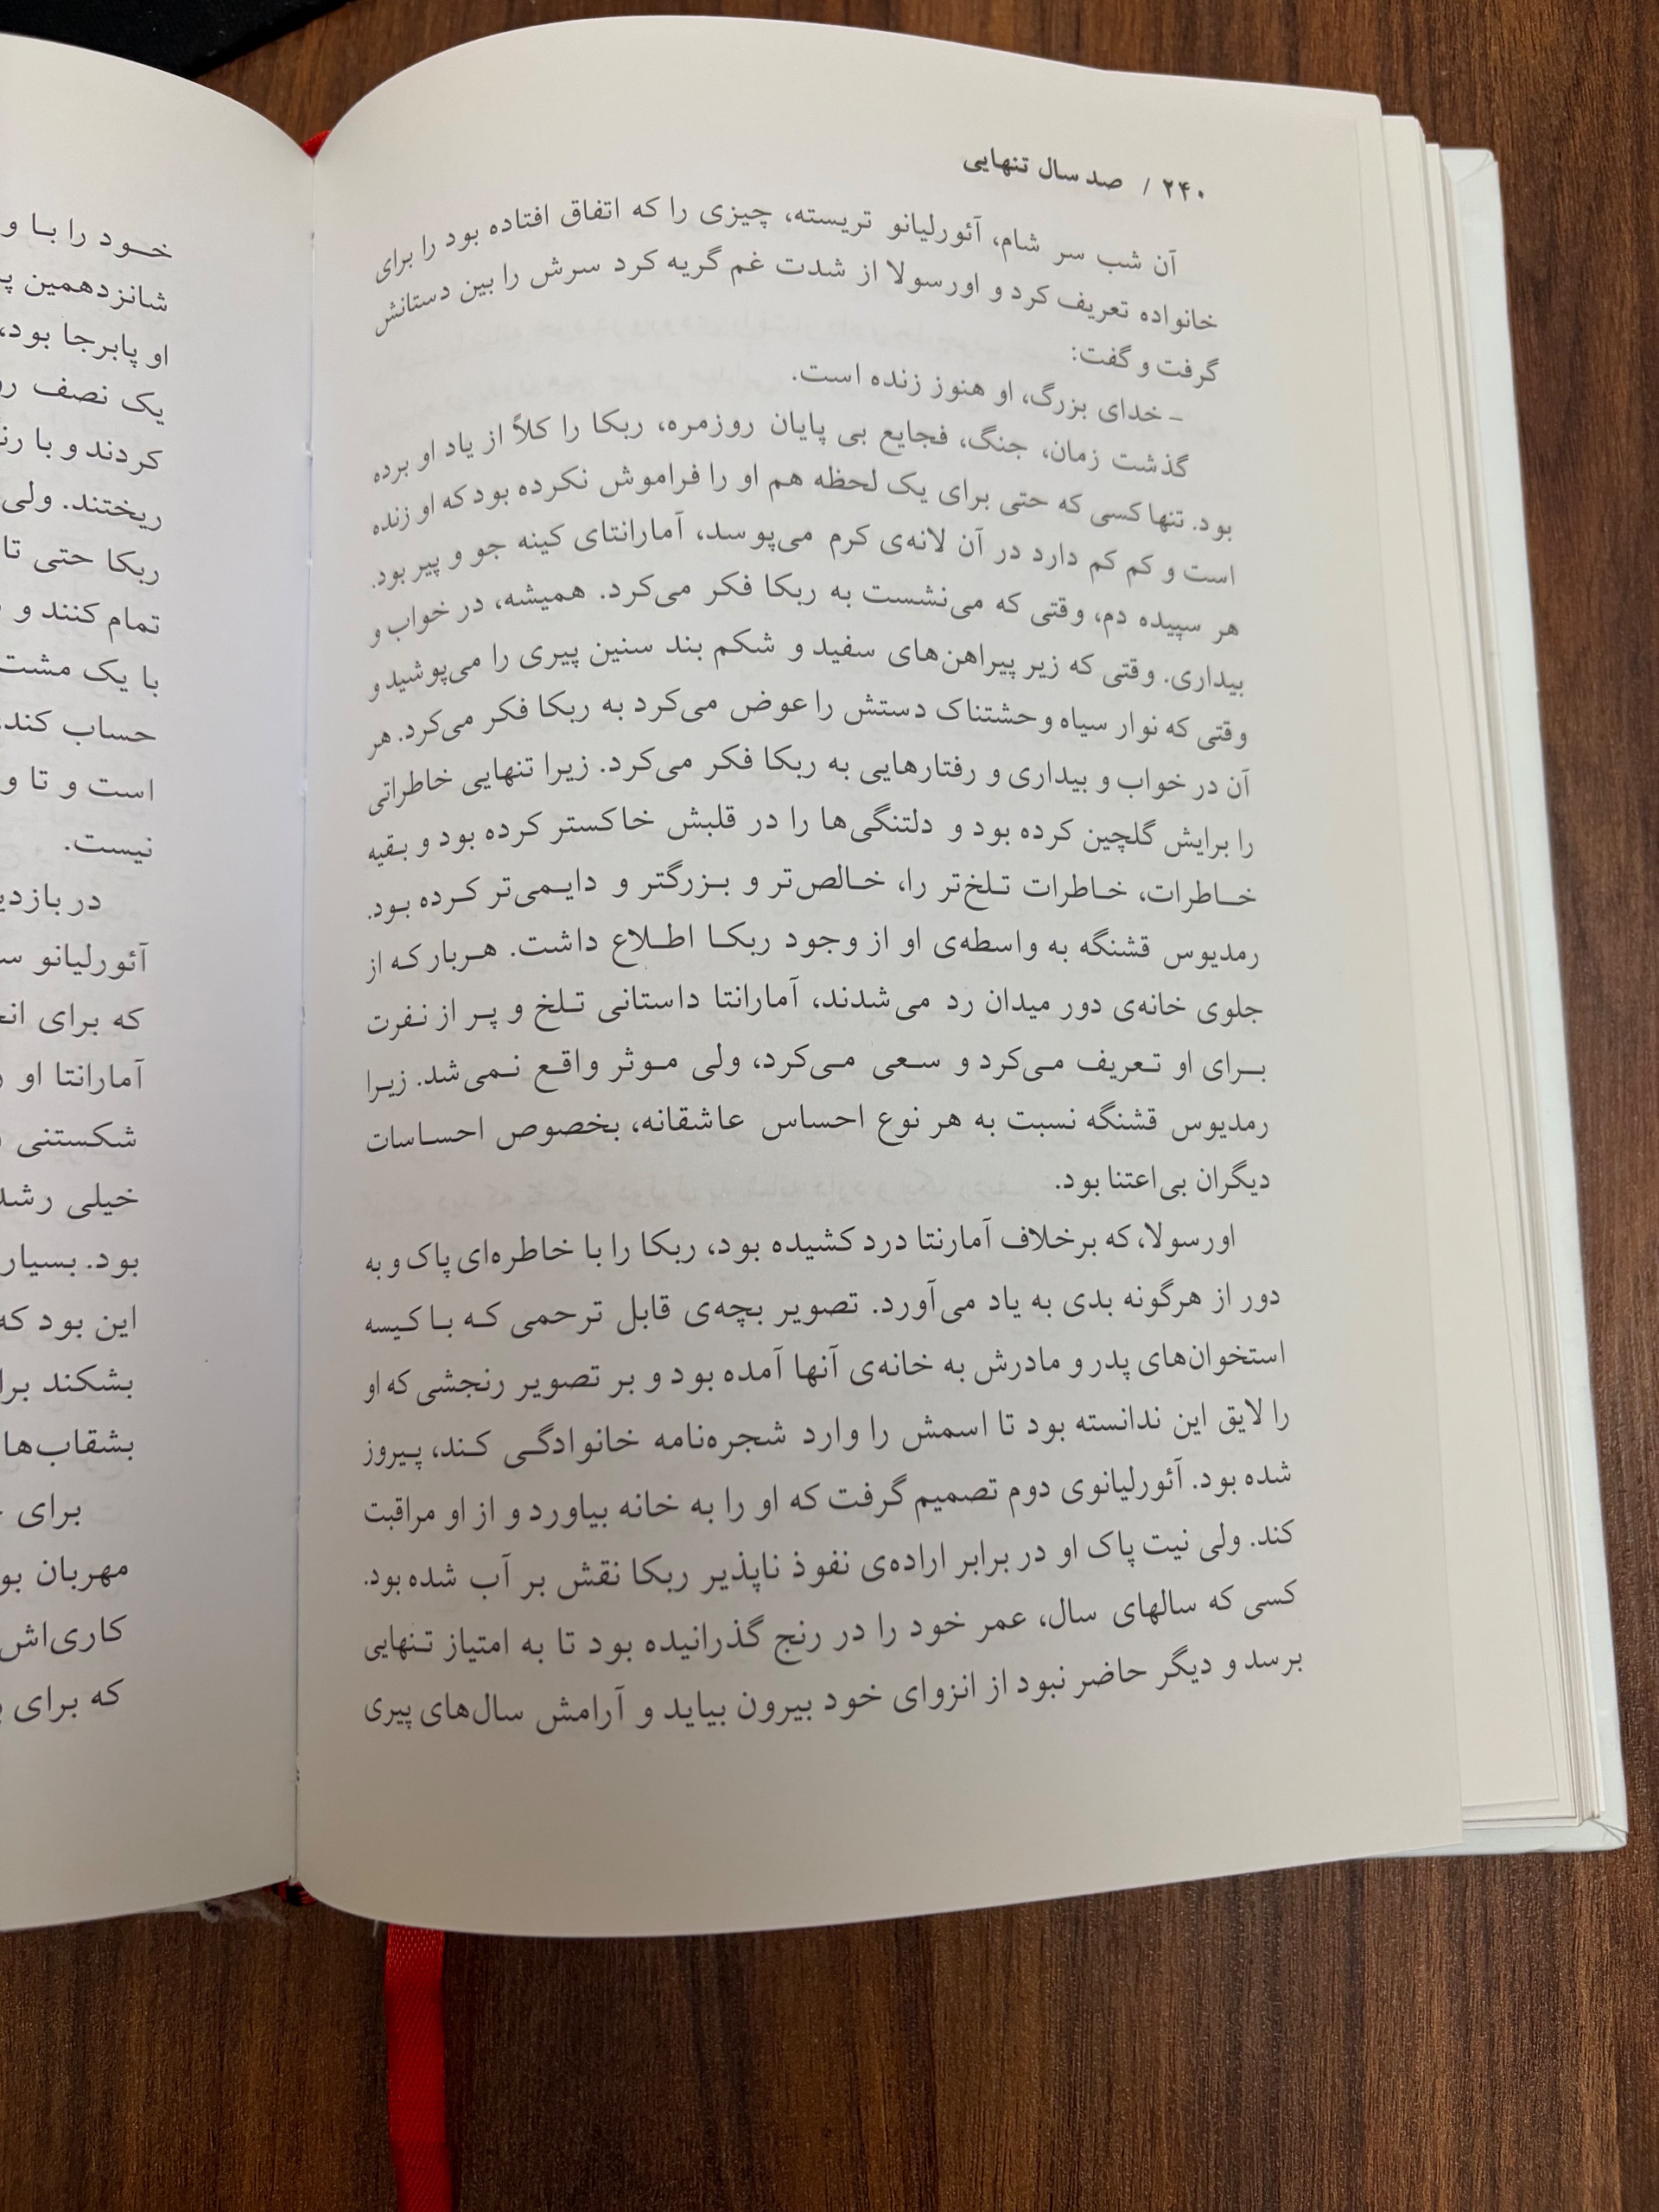 ۲۴۰ / صد سال تنهایی
آن شب سر شام، آئورلیانو تریسته، چیزی را که اتفاق افتاده بود را برای
خانواده تعریف کرد و اورسولا از شدت غم گریه کرد سرش را بین دستانش
گرفت و گفت:
- خدای بزرگ، او هنوز زنده است.
گذشت زمان، جنگ، فجایع بی پایان روزمره، ربکا را کلاً از یاد او برده
بود. تنها کسی که حتی برای یک لحظه هم او را فراموش نکرده بود که او زنده
است و کم کم دارد در آن لانه‌ی کرم می‌پوسد، آمارانتای کینه جو و پیر بود.
هر سپیده دم، وقتی که می‌نشست به ربکا فکر می‌کرد. همیشه، در خواب و
بیداری. وقتی که زیر پیراهن‌های سفید و شکم بند سنین پیری را می‌پوشید و
وقتی که نوار سیاه وحشتناک دستش را عوض می‌کرد به ربکا فکر می‌کرد. هر
آن در خواب و بیداری و رفتارهایی به ربکا فکر می‌کرد. زیرا تنهایی خاطراتی
را برایش گلچین کرده بود و دلتنگی‌ها را در قلبش خاکستر کرده بود و بقیه
خاطرات، خاطرات تلخ‌تر را، خالص‌تر و بزرگتر و دایمی‌تر کرده بود.
رمدیوس قشنگه به واسطه‌ی او از وجود ربکا اطلاع داشت. هربار که از
جلوی خانه‌ی دور میدان رد می‌شدند، آمارانتا داستانی تلخ و پر از نفرت
برای او تعریف می‌کرد و سعی می‌کرد، ولی موثر واقع نمی‌شد. زیرا
رمدیوس قشنگه نسبت به هر نوع احساس عاشقانه، بخصوص احساسات
دیگران بی‌اعتنا بود.
اورسولا، که برخلاف آمارنتا درد کشیده بود، ربکا را با خاطره‌ای پاک و به
دور از هرگونه بدی به یاد می‌آورد. تصویر بچه‌ی قابل ترحمی که با کیسه
استخوان‌های پدر و مادرش به خانه‌ی آنها آمده بود و بر تصویر رنجشی که او
را لایق این ندانسته بود تا اسمش را وارد شجره‌نامه خانوادگی کند، پیروز
شده بود. آئورلیانوی دوم تصمیم گرفت که او را به خانه بیاورد و از او مراقبت
کند. ولی نیت پاک او در برابر اراده‌ی نفوذ ناپذیر ربکا نقش بر آب شده بود.
کسی که سالهای سال، عمر خود را در رنج گذرانیده بود تا به امتیاز تنهایی
برسد و دیگر حاضر نبود از انزوای خود بیرون بیاید و آرامش سال‌های پیری
خود را با و
شانزدهمین
او پابرجا بود،
یک نصف
کردند و با
ریختند. ولی
ربکا حتی تا
تمام کنند و
با یک مشت
حساب کند
است و تا و
نیست.
در
آئورلیانو
که برای
آمارانتا او
شکستنی
خیلی
بود. بسیار
این بود که
بشکند
بشقاب‌ها
برای
مهربان
کاری‌اش
که برای